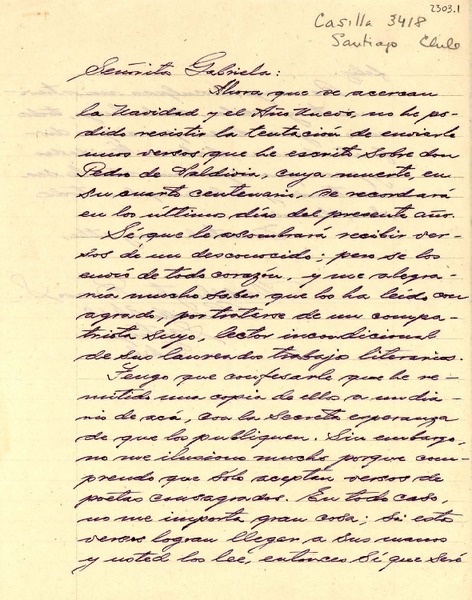 2303.1
Casilla 3418
Santiago Chile
Señorita Gabriela:
Ahora que se acercan
la Navidad y el Año Nuevo, no he po-
dido resistir la tentación de enviarle
unos versos, que he escrito sobre don
Pedro de Valdivia, cuya muerte, en
su cuarto centenario, se recordará
en los últimos días del presente año.
Sé que le asombrará recibir ver-
sos de un desconocido; pero se los
envío de todo corazón, y me alegra-
ría mucho saber que los ha leído con
agrado, por tratarse de un compa-
triota suyo, lector incondicional
de sus laureados trabajos literarios.
Tengo que confesarle que he re-
mitido una copia de ellos a un dia-
rio de acá, con la secreta esperanza
de que los publiquen. Sin embargo,
no me ilusiono mucho porque com-
prendo que sólo aceptan versos de
poetas consagrados. En todo caso,
no me importa gran cosa; si estos
versos logran llegar a sus manos
y usted los lee, entonces sí que será